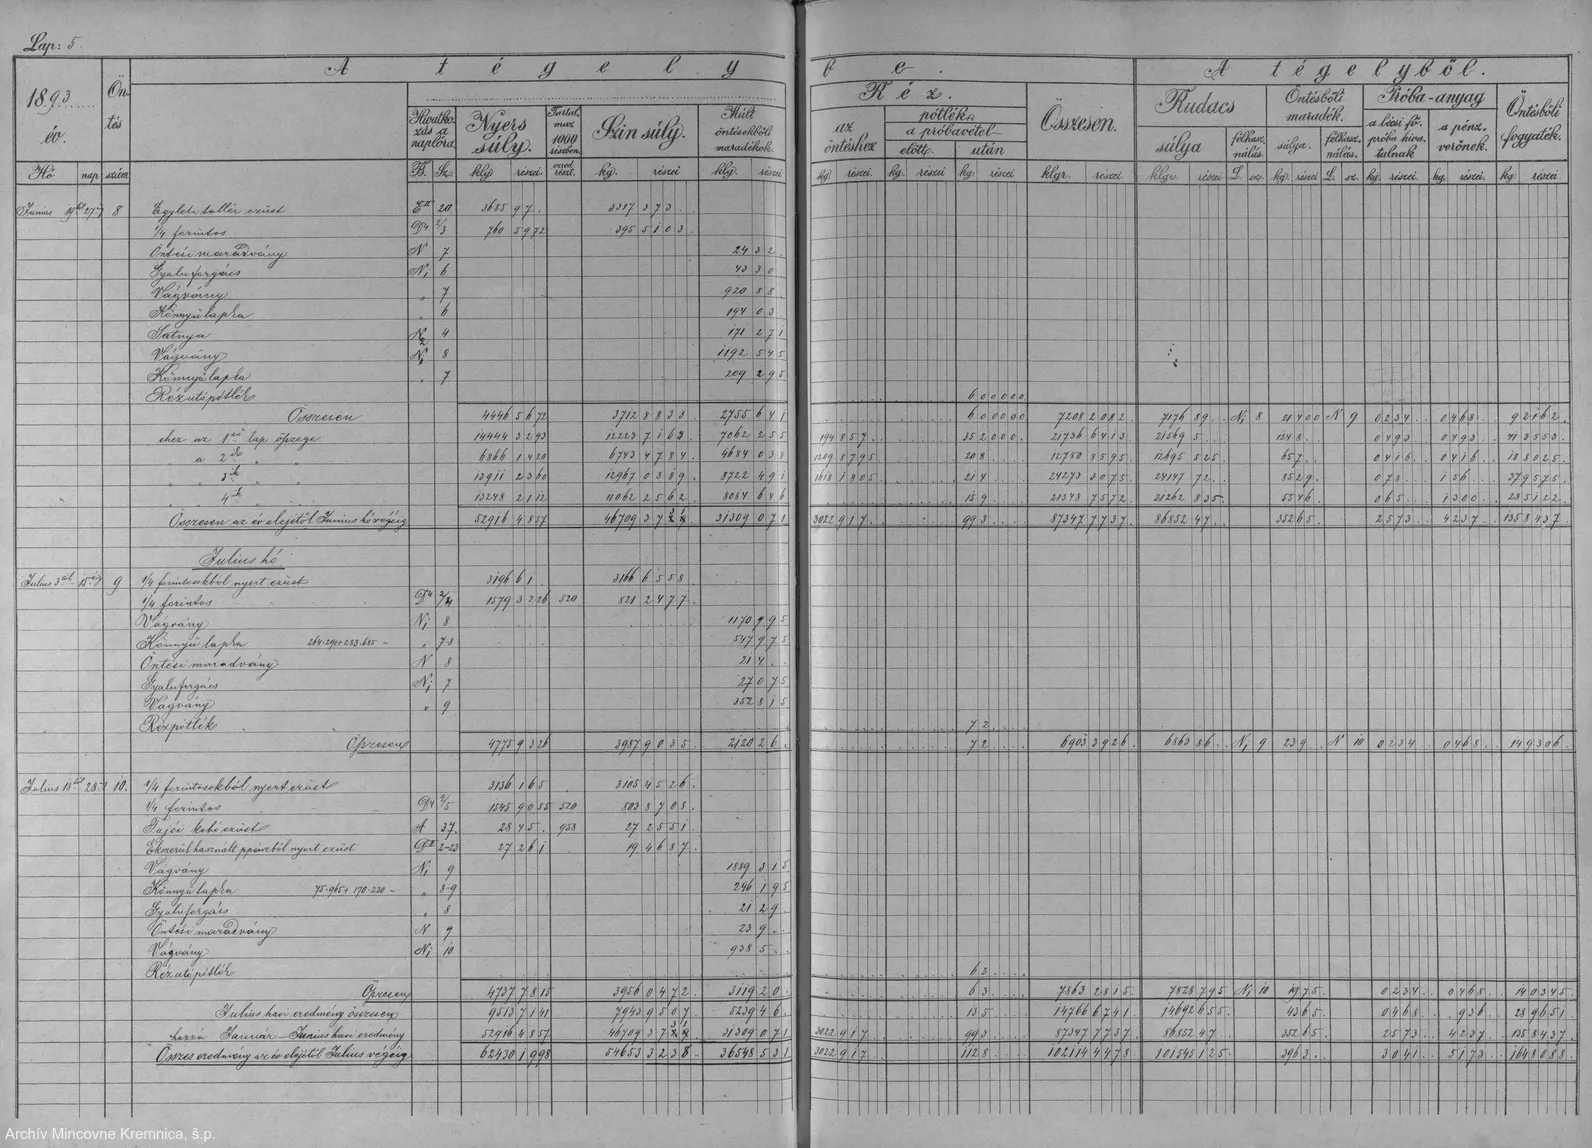 Lap: 5.
A tégelybe.
A tégelyből.
1893
év.
Ön-
tés
Hivatko-
zás a
naplóra.
Nyers
súly.
Tartal-
maz
1000
részben.
Szín súly.
Múlt
öntésekből
maradékok.
Réz.
az
öntéshez
pótlék.
a próbavétel-
előtt.
után
Összesen.
Rudacs
súlya
felhasz-
nálás.
Öntésbőli
maradék.
súlya.
felhasz-
nálás.
Próba-anyag
a bécsi fő-
próba hiva-
talnak
a pénz-
verőnek.
Öntésbőli
fogyaték.
Hó nap szám B. Sz. klg részei ezred részt. kg. részei klg. részei kg. részei kg. részei kg. részei klgr. részei klgr. részei L. sz. kg. részei L. sz. kg. részei. kg. részei. kg. részei
Junius 27 8 Egyleti tallér ezüst 20. 3685 97. 3317 373
1/4 forintos 2/3 760 5972 395 5103
Öntési maradvány N 7 2432
Gyaluforgács N1 6 4330
Vágvány " 7 920 88
Könnyü lapka " 6 194 03
Satnya N2 4 171 271
Vágvány N1 8 1192 545
Könnyü lapka " 7 209 295
Rézutópótlék 6 00000
Összesen 4446 5672 3712 8833 2755 641 6 00000 7208 2082 7176 89 N1 8 21400 N 9 0234 0468 92162
ehez az 1ső lap összege 14444 3293 12223 7163 7062 255 194 857 352000 21736 6413 21569 5 1248 0493 0493 413553
" a 2ik " " 6866 1420 6743 4784 4684 038 1209 8795 208 12750 8595 12695 525 657 0416 0416 183025
" " 3ik " " 13911 2360 12967 0389 8722 491 1618 1805 214 24273 3075 24147 72 8529 078 156 379575
" " 4ik " " 13248 2112 11062 2562 8084 646 159 21348 7572 21262 835 5546 065 1300 285122
Összesen az év elejétől Junius hó végéig 52916 4857 46709 37 31309 071 3022 917 993 87347 7737 86852 47 35265 2573 4237 1358437
Julius hó
Julius 3 15 9 1/4 forintosokból nyert ezüst 3196 61 3166 6558
1/4 forintos 1579 3226 520 821 2477
Vágvány N1 8 1170 995
Könnyü lapka 264.291+283.685 = " 78 547 975
Öntési maradvány N 8 214
Gyaluforgács N1 7 27075
Vágvány " 9 352 815
Rézpótlék 72
Összesen 4775 9326 3987 9035 2120 26 72 6903 3926 6863 86 N1 9 239 N 10 0234 0468 149306
Julius 18 28 10. 1/4 forintosokból nyert ezüst 3136 165 3105 4526
1/4 forintos 2/5 1545 9055 520 803 8708
Tajói kohó ezüst A 37. 28 45 958 27 2551
Ékszerül használt ppénzből nyert ezüst 2-23 27 261 19 4687
Vágvány N1 9 1889 315
Könnyü lapka 75.965+170.230 = " 8-9 246 195
Gyaluforgács " 8 2129
Öntési maradvány N 9 239
Vágvány N1 10 938 5
Rézutópótlék 63
Összesen 4737 7815 3956 0472 3119 20 63 7863 2815 7828 795 N1 10 1975 0234 0468 140345
Julius havi eredmény összesen 9513 7141 7943 9507 5239 46 135 14766 6741 14692 655 4365 0468 936 289651
hozzá Január-Junius havi eredmény 52916 4857 46709 37 31309 071 3022 917 993 87347 7737 86852 47 35265 2573 4237 1358437
Összes eredmény az év elejétől Julius végéig 62430 1998 54653 3238 36548 531 3022 917 1128 102114 4478 101545 125 3963 3041 5173 1648088
Archív Mincovne Kremnica, š.p.